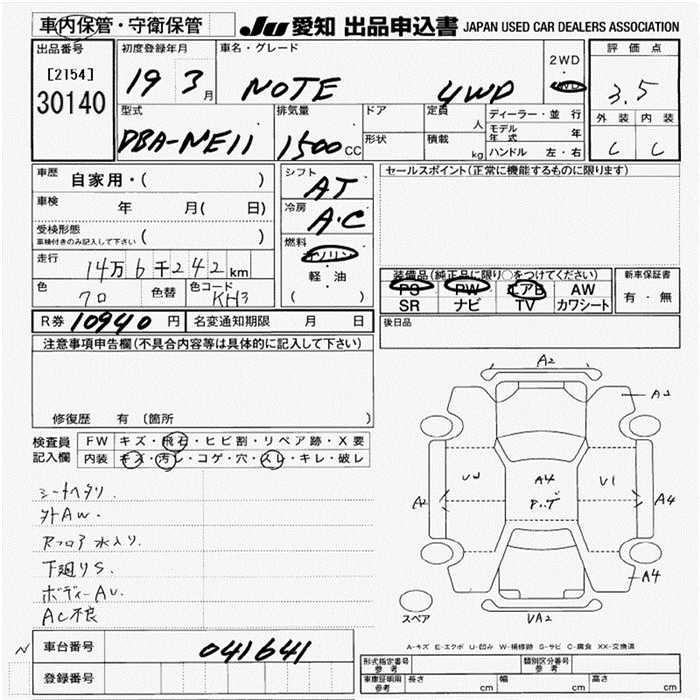 車内保管・守衛保管 JU 愛知 出品申込書 JAPAN USED CAR DEALERS ASSOCIATION
出品番号 [2154] 30140
初度登録年月 19 3月
車名・グレード NOTE 4WD
2WD ・ 4WD
評価点 3.5
外装 C 内装 C
型式 DBA-NE11
排気量 1500cc
ドア 形状
定員 人 積載 kg
ディーラー・並行
モデル年式 年
ハンドル 左・右
車歴 自家用・( )
車検 年 月( 日)
受検形態 車検付きのみ記入して下さい ( )
走行 14万6千242km
色 クロ 色替 色コード KH3
シフト AT
冷房 A・C
燃料 ガソリン 軽・油 ( )
セールスポイント(正常に機能するものに限ります)
装備品(純正品に限り○をつけてください)
PS PW エアB AW
SR ナビ TV カワシート
新車保証書 有・無
R券 10940円 名変通知期限 月 日
後日品
注意事項申告欄(不具合内容等は具体的に記入して下さい)
修復歴 有 (箇所 )
検査員記入欄
FW キズ・飛石・ヒビ割・リペア跡・X要
内装 キズ・汚レ・コゲ・穴・スレ・キレ・破レ
シートヘタリ.
外AW.
Rフロア水入り.
下廻りS.
ボディーAU.
AC不良
A2
A2
A2 U2 A4 U1 A4
P.ッチ
A4
スペア UA2
A-キズ E-エクボ U-凹み W-補修跡 S-サビ C-腐食 XX-交換済
N 車台番号 041641
登録番号
形式指定番号 参考 類別区分番号 参考
車庫証明用 参考 長さ cm 幅 cm 高さ cm